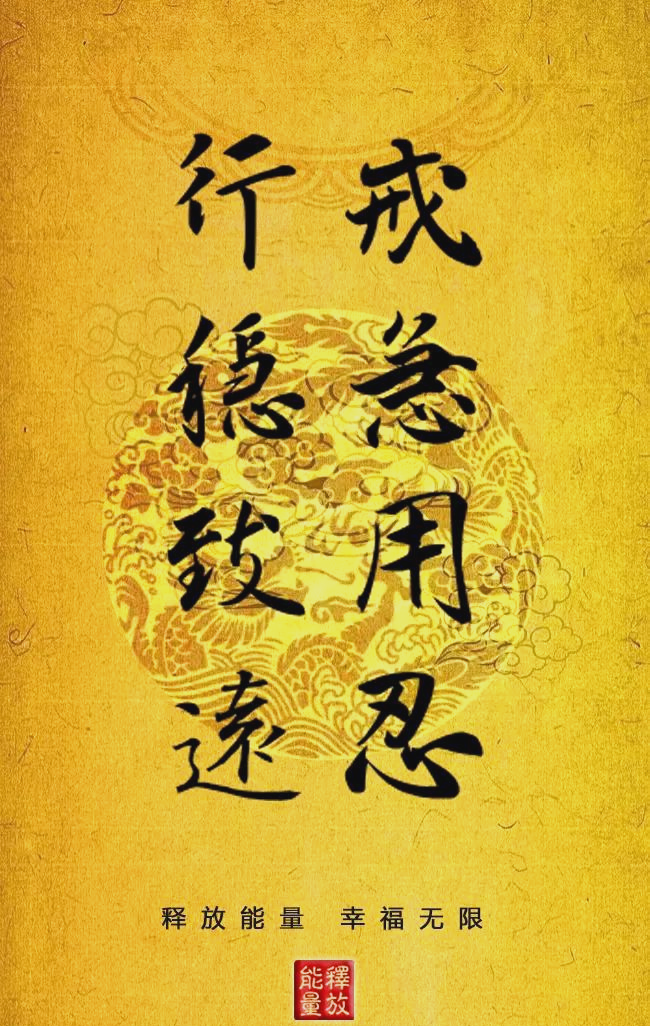 戒急用忍
行穩致遠
释放能量 幸福无限
釋放
能量